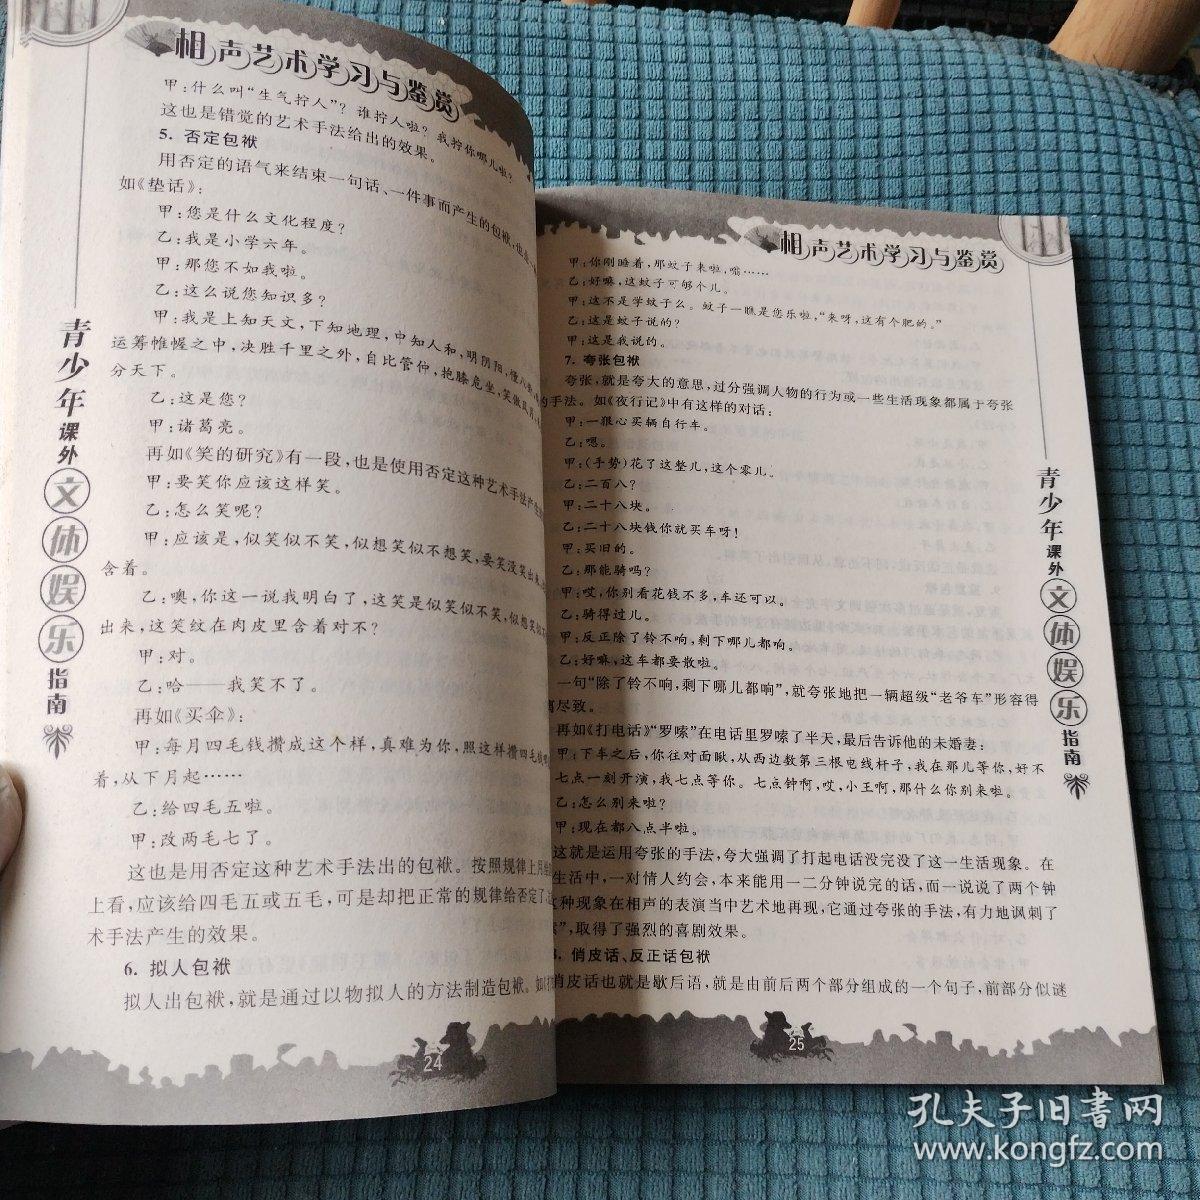 相声艺术学习与鉴赏
甲:什么叫“生气拧人”?谁拧人啦?我拧你哪儿啦?
这也是错觉的艺术手法给出的效果。
5. 否定包袱
用否定的语气来结束一句话、一件事而产生的包袱,也
如《垫话》:
甲:您是什么文化程度?
乙:我是小学六年。
甲:那您不如我啦。
乙:这么说您知识多?
甲:我是上知天文,下知地理,中知人和,明阴阳,懂八
运筹帷幄之中,决胜千里之外,自比管仲,抱膝危坐,笑傲风月,
分天下。
乙:这是您?
甲:诸葛亮。
再如《笑的研究》有一段,也是使用否定这种艺术手法产生
甲:要笑你应该这样笑。
乙:怎么笑呢?
甲:应该是,似笑似不笑,似想笑似不想笑,要笑没笑出来,
含着。
乙:噢,你这一说我明白了,这笑是似笑似不笑,似想笑似不
出来,这笑纹在肉皮里含着对不?
甲:对。
乙:哈——我笑不了。
再如《买伞》:
甲:每月四毛钱攒成这个样,真难为你,照这样攒四毛钱
着,从下月起……
乙:给四毛五啦。
甲:改两毛七了。
这也是用否定这种艺术手法出的包袱。按照规律上
上看,应该给四毛五或五毛,可是却把正常的规律给否定了
术手法产生的效果。
6. 拟人包袱
拟人出包袱,就是通过以物拟人的方法制造包袱。如
24
青少年课外文体娱乐指南
相声艺术学习与鉴赏
甲:你刚睡着,那蚊子来啦,嗡……
乙:好嘛,这蚊子可够个儿。
甲:这不是学蚊子么。蚊子一瞧是您乐啦,“来呀,这有个肥的。”
乙:这是蚊子说的?
甲:这是我说的。
7. 夸张包袱
夸张,就是夸大的意思,过分强调人物的行为或一些生活现象都属于夸张
的手法。如《夜行记》中有这样的对话:
甲:一狠心买辆自行车。
乙:嗯。
甲:(手势)花了这整儿,这个零儿。
乙:二百八?
甲:二十八块。
乙:二十八块钱你就买车呀!
甲:买旧的。
乙:那能骑吗?
甲:哎,你别看花钱不多,车还可以。
乙:骑得过儿。
甲:反正除了铃不响,剩下哪儿都响。
乙:好嘛,这车都要散啦。
一句“除了铃不响,剩下哪儿都响”,就夸张地把一辆超级“老爷车”形容得
尽致。
再如《打电话》“罗嗦”在电话里罗嗦了半天,最后告诉他的未婚妻:
甲:下车之后,你往对面瞅,从西边数第三根电线杆子,我在那儿等你,好不
七点一刻开演,我七点等你。七点钟啊,哎,小王啊,那什么你别来啦。
乙:怎么别来啦?
甲:现在都八点半啦。
这就是运用夸张的手法,夸大强调了打起电话没完没了这一生活现象。在
生活中,一对情人约会,本来能用一二分钟说完的话,而一说说了两个钟
这种现象在相声的表演当中艺术地再现,它通过夸张的手法,有力地讽刺了
”,取得了强烈的喜剧效果。
8. 俏皮话、反正话包袱
俏皮话也就是歇后语,就是由前后两个部分组成的一个句子,前部分似谜
25
青少年课外文体娱乐指南
孔夫子旧书网
www.kongfz.com